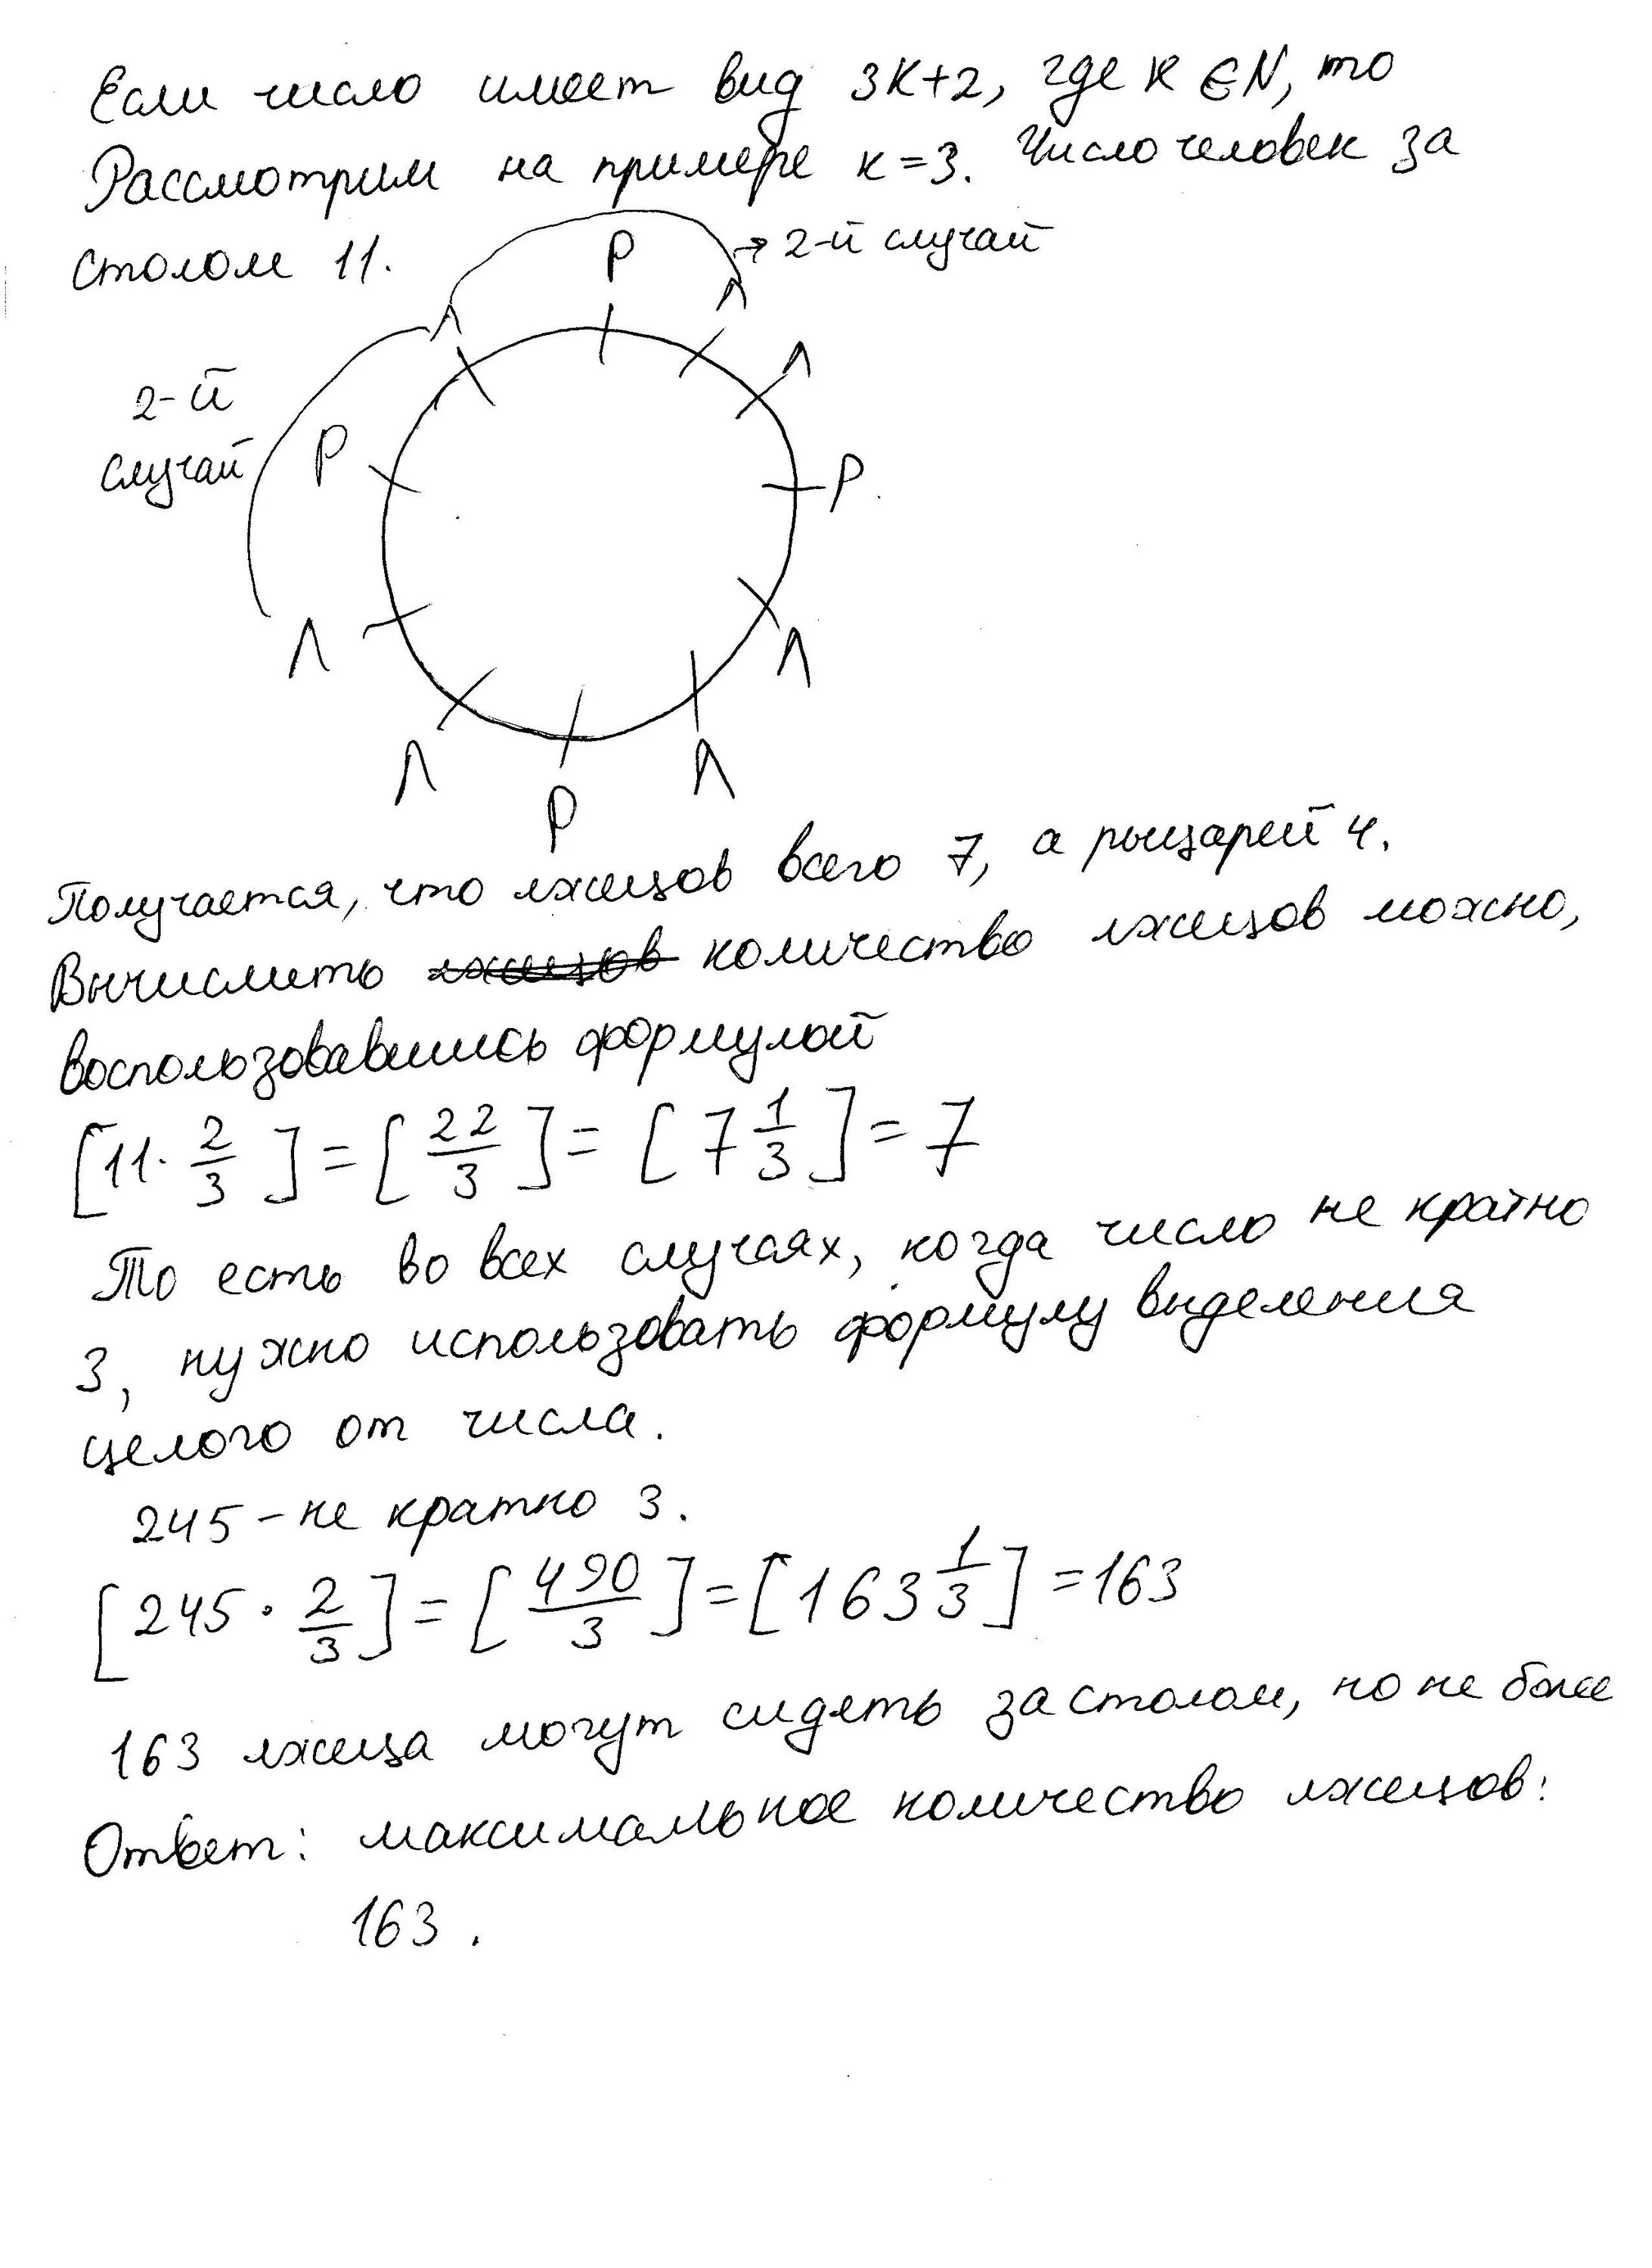 Если число имеет вид 3К+2, где К ∈ N, то
Рассмотрим на примере к=3. Число человек за
столом 11.
Р
→ 2-й случай
Л
Л
Л
2-й
случай
Р
Р.
Л
Л
Л
Л
Р
Получается, что лжецов всего 7, а рыцарей 4.
Вычислить лжецов количество лжецов можно,
воспользовавшись формулой
[11· 2/3] = [22/3] = [7 1/3] = 7
То есть во всех случаях, когда число не кратно
3, нужно использовать формулу выделения
целого от числа.
245 – не кратно 3.
[245 · 2/3] = [490/3] = [163 1/3] = 163
163 лжеца могут сидеть за столом, но не более
Ответ: максимальное количество лжецов:
163.